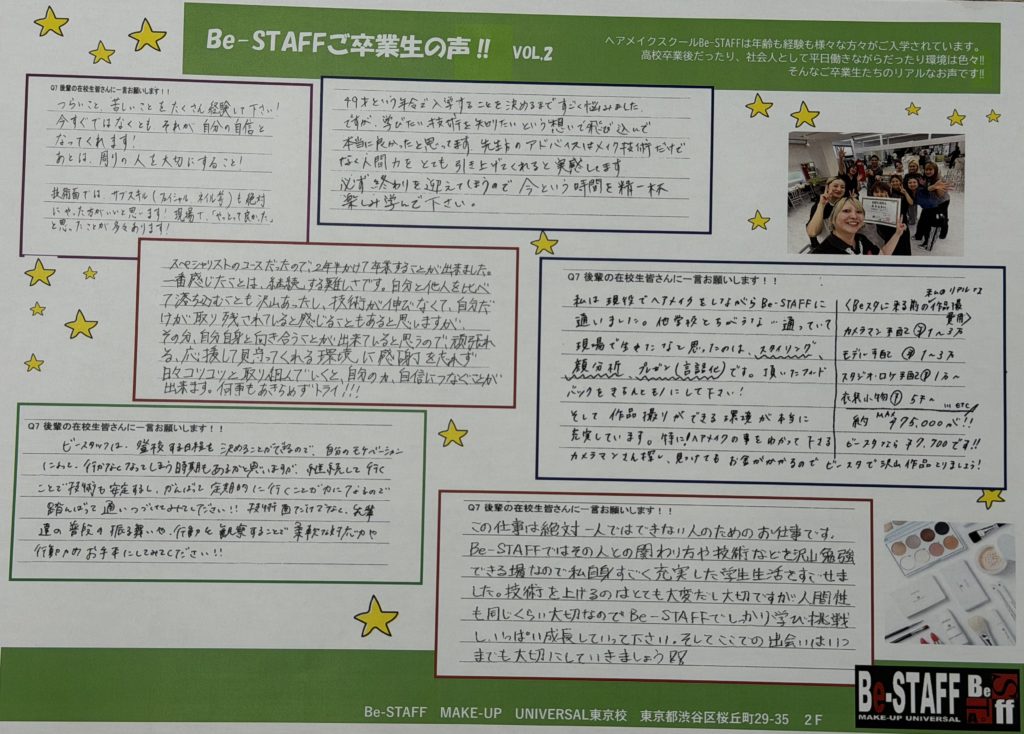 Be-STAFFご卒業生の声!! VOL.2
ヘアメイクスクールBe-STAFFは年齢も経験も様々な方々がご入学されています。
高校卒業後だったり、社会人として平日働きながらだったり環境は色々!!
そんなご卒業生たちのリアルなお声です!!
Q7 後輩の在校生皆さんに一言お願いします！！
つらいこと、苦しいことをたくさん経験して下さい!
今すぐではなくとも、それが自分の自信と
なってくれます!
あとは、周りの人を大切にすること!
技術面では、サブスキル(フェイシャル、ネイル等)も絶対
にやった方がいいと思います!現場で、「やっとって良かった」
と思ったことが多々あります!
49才という年令で入学することを決めるまですごく悩みました。
ですが、学びたい技術を知りたいという想いで飛び込んで
本当に良かったと思ってます 先生方のアドバイスはメイク技術だけで
なく人間力をとても引き上げてくれると実感します
必ず終わりを迎えてしまうので今という時間を精一杯
楽しみ学んで下さい。
スペシャリストのコースだったので、2年半かけて卒業することが出来ました。
一番感じたことは、継続する難しさです。自分と他人を比べ
て落ち込むことも沢山あったし、技術が伸びなくて、自分だ
けが取り残されていると感じることもあると思いますが、
その分、自分自身と向き合うことが出来ていると思うので、頑張れ
る、応援して見守ってくれる環境に感謝を忘れず
日々コツコツと取り組んでいくと、自分の力、自信につなぐことが
出来ます。何事もあきらめずトライ!!!
Q7 後輩の在校生皆さんに一言お願いします！！
私は現役でヘアメイクをしながらBe-STAFFに
通いました。他学校とちがうな〜通っていて
現場で生きたなと思ったのは、スタイリング、
顔分析、プレゼン(言語化)です。頂いたフィード
バックをきちんとモノにして下さい!
そして作品撮りができる環境が本当に
充実しています。特にヘアメイクの事をわかって下さる
カメラマンさん探し、見つけてもお金がかかるのでビースタで沢山作品とりましょう!
私のリアルは
〈Beスタに来る前の作品撮
費用〉
カメラマン手配 1〜3万
モデル手配 1〜3万
スタジオ・ロケ手配 1万〜
衣装小物 5千〜
... ETC
約 MAX ¥75,000が!!
ビースタなら¥7,700です!!
Q7 後輩の在校生皆さんに一言お願いします！！
ビースタッフは、登校する日程も決めることができるので、自分のモチベーション
によって、行かなくなってしまう時期もあるかと思いますが、継続して行く
ことで技術も安定するし、がんばって定期的に行くことが力になるので
踏んばって通いつづけてみてください!! 技術面だけでなく、先輩
達の普段の振る舞いや、行動を観察することで柔軟な対応力や
行動力のお手本にしてみてください!!
Q7 後輩の在校生皆さんに一言お願いします！！
この仕事は絶対一人ではできない人のためのお仕事です。
Be-STAFFではその人との関わり方や技術などを沢山勉強
できる場なので私自身すごく充実した学生生活をすごせま
した。技術を上げるのはとても大変だし大切ですが人間性
も同じくらい大切なのでBe-STAFFでしっかり学び挑戦
し、いっぱい成長していって下さい。そしてここでの出会いはいつ
までも大切にしていきましょう
Be-STAFF MAKE-UP UNIVERSAL東京校 東京都渋谷区桜丘町29-35 2F
Be-STAFF
MAKE-UP UNIVERSAL
Be
Staff